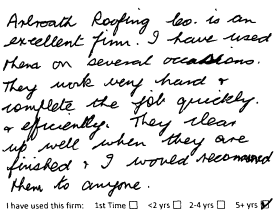 Arbroath Roofing Co. is an
excellent firm. I have used
them on several occasions.
They work very hard &
complete the job quickly.
& efficiently. They clear
up well when they are
finished & I would recommend
them to anyone.
I have used this firm: 1st Time ☐ <2 yrs ☐ 2-4 yrs ☐ 5+ yrs ☑